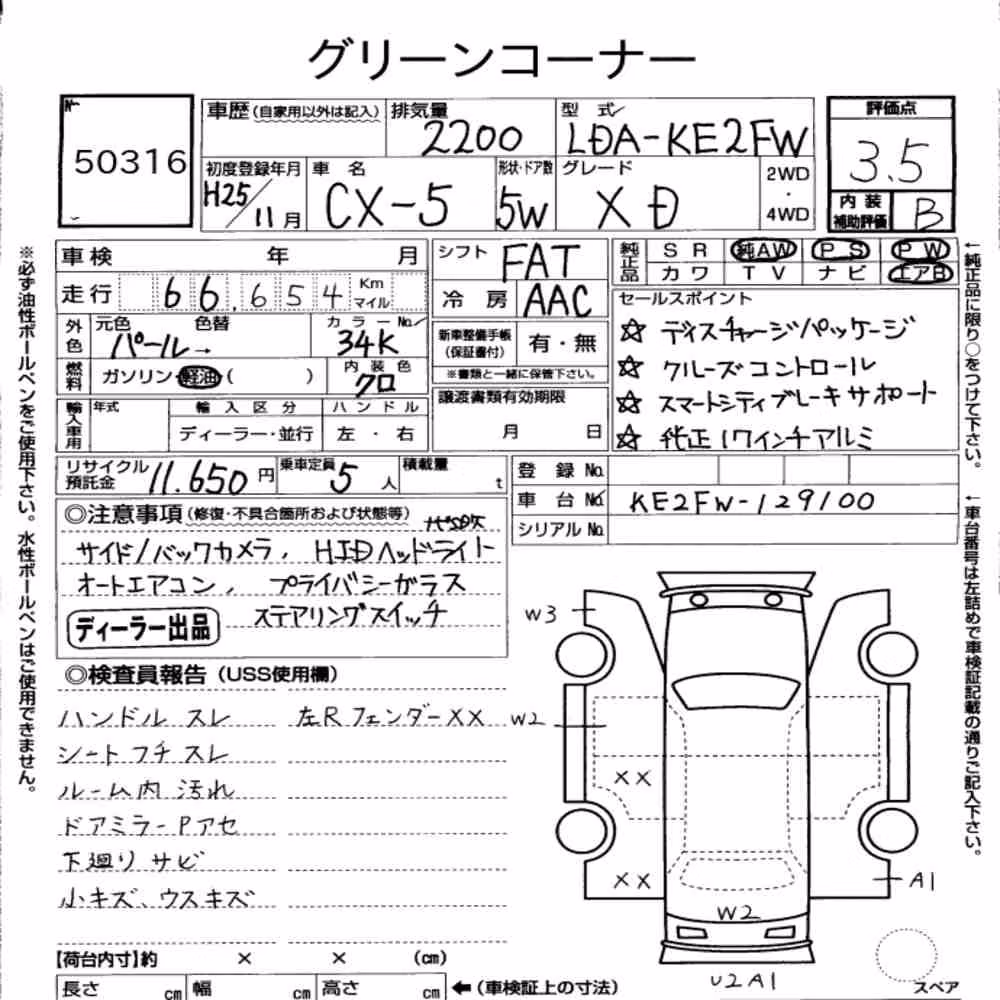 グリーンコーナー
50316
車歴(自家用以外は記入)
排気量
2200
型式
LDA-KE2FW
評価点
3.5
初度登録年月
H25/11月
車名
CX-5
形状・ドア数
5W
グレード
XD
2WD
・
4WD
内装
補助評価
B
車検 年 月
シフト
FAT
純正品
SR 純AW PS PW
カワ TV ナビ エアB
走行 66,654 Km マイル
冷房
AAC
セールスポイント
☆ ディスチャージパッケージ
☆ クルーズコントロール
☆ スマートシティブレーキサポート
☆ 純正17インチアルミ
外色
元色 色替
パール→
カラーNo.
34K
新車整備手帳
(保証書付)
有・無
※書類と一緒に保管下さい。
燃料
ガソリン・軽油( )
内装色
クロ
譲渡書類有効期限
月 日
輸入車用
年式
輸入区分
ディーラー・並行
ハンドル
左・右
リサイクル
預託金
11.650円
乗車定員
5人
積載量
t
登録No.
車台No.
KE2FW-129100
シリアルNo.
◎注意事項(修復・不具合箇所および状態等)
サイド/バックカメラ、HIDヘッドライト
オートエアコン、プライバシーガラス
ステアリングスイッチ
ディーラー出品
◎検査員報告(USS使用欄)
ハンドル スレ
左Rフェンダー××
シート フチ スレ
ルーム内 汚れ
ドアミラーPアセ
下廻り サビ
小キズ、ウスキズ
W3
W2
××
××
A1
W2
U2A1
スペア
【荷台内寸】約 × × (cm)
長さ cm 幅 cm 高さ cm
←(車検証上の寸法)
※必ず油性ボールペンをご使用下さい。水性ボールペンはご使用できません。
←純正品に限り○をつけて下さい。
←車台番号は左詰めで車検証記載の通りご記入下さい。